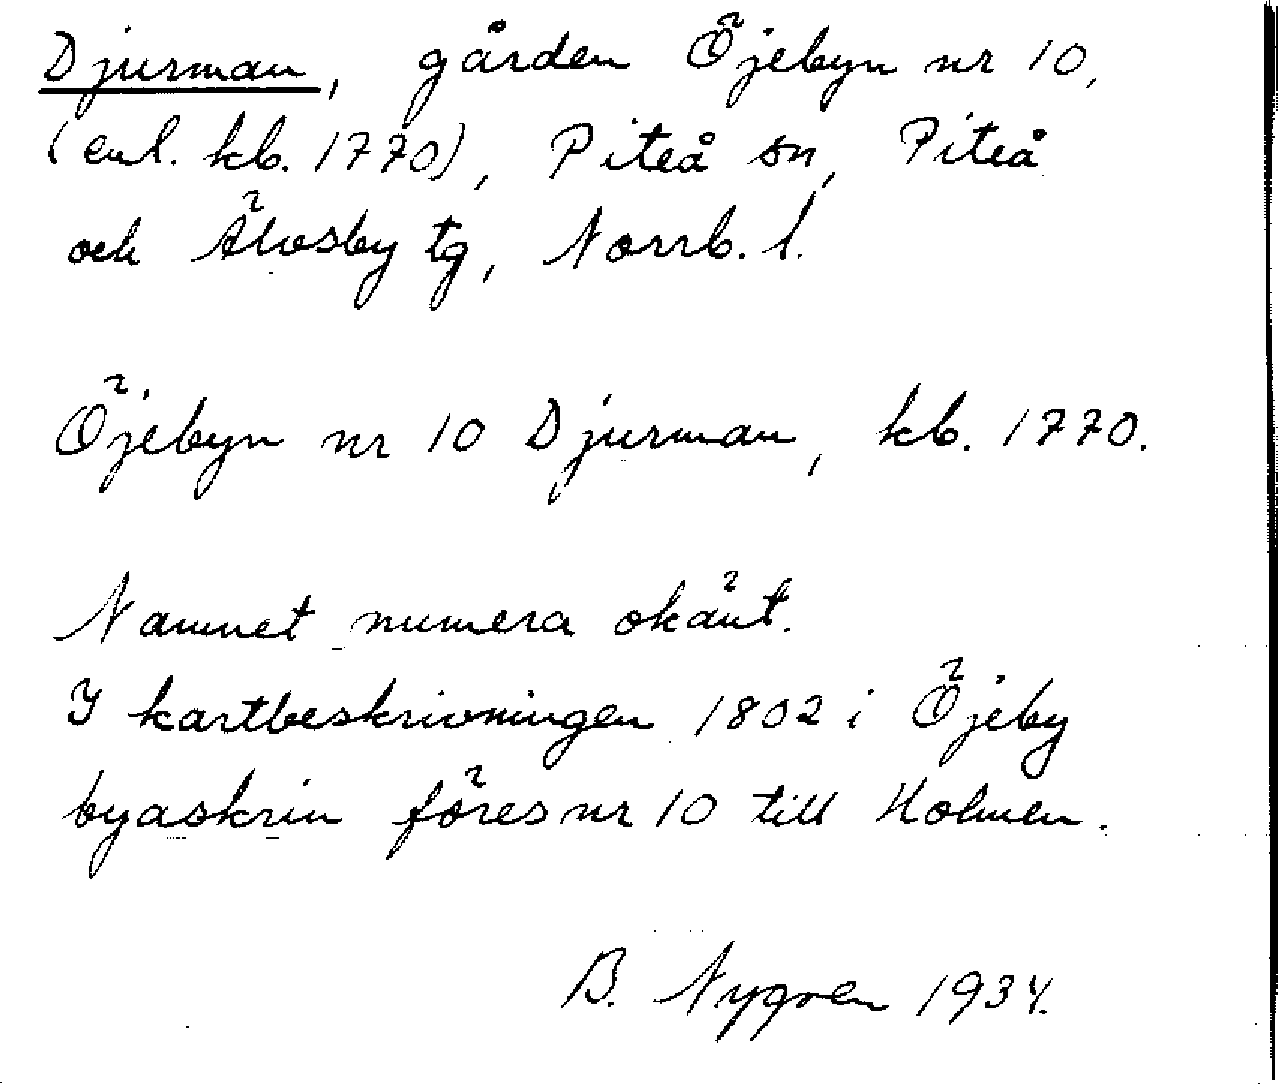 Djurman, gården Öjebyn nr 10,
(enl. kb. 1770), Piteå sn, Piteå
och Älvsby tg, Norrb. l.
Öjebyn nr 10 Djurman, kb. 1770.
Namnet numera okänt.
I kartbeskrivningen 1802 i Öjeby
byaskrin föres nr 10 till Holmen.
B. Nygren 1934.